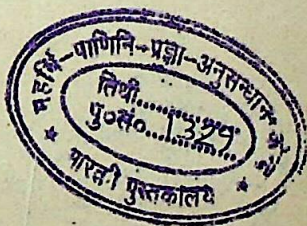 महर्षि-पाणिनि-प्रज्ञा-अनुसन्धान
तिथी..........
पु०सं०....1379....
भारती पुस्तकालय